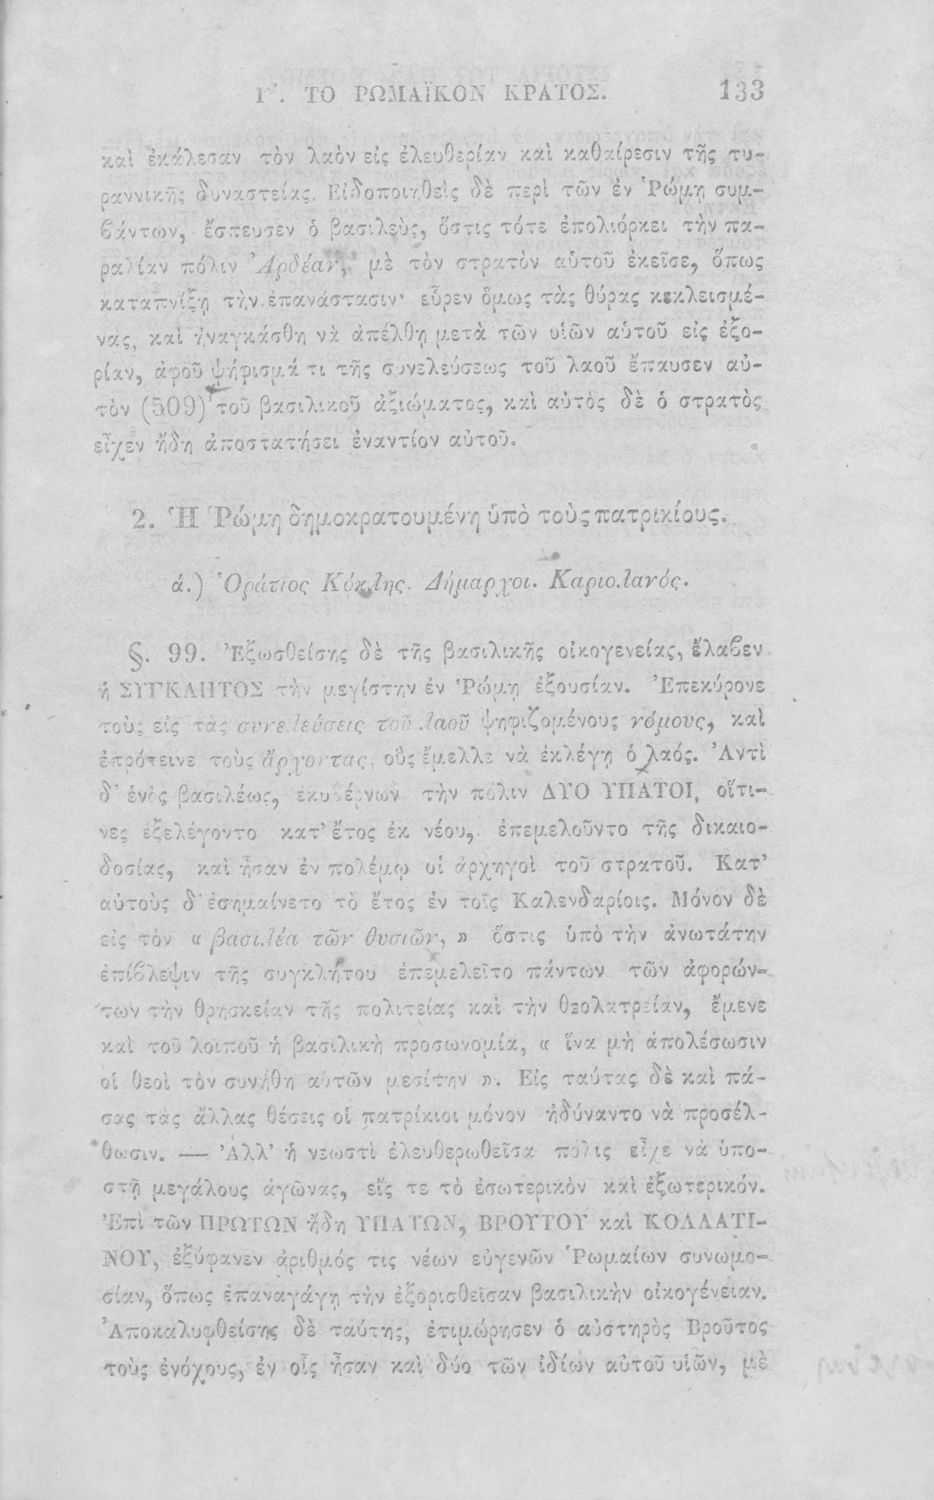 Γʹ. ΤΟ ΡΩΜΑΪΚΟΝ ΚΡΑΤΟΣ. 133
καὶ ἐκάλεσαν τὸν λαὸν εἰς ἐλευθερίαν καὶ καθαίρεσιν τῆς τυ-
ραννικῆς δυναστείας. Εἰδοποιηθεὶς δὲ περὶ τῶν ἐν Ῥώμῃ συμ-
βάντων, ἔσπευσεν ὁ βασιλεὺς, ὅστις τότε ἐπολιόρκει τὴν πα-
ραλίαν πόλιν Ἀρδέαν, μὲ τὸν στρατὸν αὑτοῦ ἐκεῖσε, ὅπως
καταπνίξῃ τὴν ἐπανάστασιν· εὗρεν ὅμως τὰς θύρας κεκλεισμέ-
νας, καὶ ἠναγκάσθη νὰ ἀπέλθῃ μετὰ τῶν υἱῶν αὑτοῦ εἰς ἐξο-
ρίαν, ἀφοῦ ψήφισμά τι τῆς συνελεύσεως τοῦ λαοῦ ἔπαυσεν αὐ-
τὸν (509) τοῦ βασιλικοῦ ἀξιώματος, καὶ αὐτὸς δὲ ὁ στρατὸς
εἶχεν ἤδη ἀποστατήσει ἐναντίον αὐτοῦ.
2. Ἡ Ῥώμη δημοκρατουμένη ὑπὸ τοὺς πατρικίους.
ά.) Ὁράτιος Κόκλης. Δήμαρχοι. Καριολανός.
§. 99. Ἐξωσθείσης δὲ τῆς βασιλικῆς οἰκογενείας, ἔλαβεν
ἡ ΣΥΓΚΛΗΤΟΣ τὴν μεγίστην ἐν Ῥώμῃ ἐξουσίαν. Ἐπεκύρονε
τοὺς εἰς τὰς συνελεύσεις τοῦ λαοῦ ψηφιζομένους νόμους, καὶ
ἐπρότεινε τοὺς ἄρχοντας, οὓς ἔμελλε νὰ ἐκλέγῃ ὁ λαός. Ἀντὶ
δ' ἑνὸς βασιλέως, ἐκυβέρνων τὴν πόλιν ΔΥΟ ΥΠΑΤΟΙ, οἵτι-
νες ἐξελέγοντο κατ' ἔτος ἐκ νέου, ἐπεμελοῦντο τῆς δικαιο-
δοσίας, καὶ ἦσαν ἐν πολέμῳ οἱ ἀρχηγοὶ τοῦ στρατοῦ. Κατ'
αὐτοὺς δ' ἐσημαίνετο τὸ ἔτος ἐν τοῖς Καλενδαρίοις. Μόνον δὲ
εἰς τὸν « βασιλέα τῶν θυσιῶν, » ὅστις ὑπὸ τὴν ἀνωτάτην
ἐπίβλεψιν τῆς συγκλήτου ἐπεμελεῖτο πάντων τῶν ἀφορών-
των τὴν θρησκείαν τῆς πολιτείας καὶ τὴν θεολατρείαν, ἔμενε
καὶ τοῦ λοιποῦ ἡ βασιλικὴ προσωνομία, « ἵνα μὴ ἀπολέσωσιν
οἱ θεοὶ τὸν συνήθη αὑτῶν μεσίτην ». Εἰς ταύτας δὲ καὶ πά-
σας τὰς ἄλλας θέσεις οἱ πατρίκιοι μόνον ἠδύναντο νὰ προσέλ-
θωσιν. — Ἀλλ' ἡ νεωστὶ ἐλευθερωθεῖσα πόλις εἶχε νὰ ὑπο-
στῇ μεγάλους ἀγῶνας, εἴς τε τὸ ἐσωτερικὸν καὶ ἐξωτερικόν.
Ἐπὶ τῶν ΠΡΩΤΩΝ ἤδη ΥΠΑΤΩΝ, ΒΡΟΥΤΟΥ καὶ ΚΟΛΛΑΤΙ-
ΝΟΥ, ἐξύφανεν ἀριθμός τις νέων εὐγενῶν Ῥωμαίων συνωμο-
σίαν, ὅπως ἐπαναγάγῃ τὴν ἐξορισθεῖσαν βασιλικὴν οἰκογένειαν.
Ἀποκαλυφθείσης δὲ ταύτης, ἐτιμώρησεν ὁ αὐστηρὸς Βροῦτος
τοὺς ἐνόχους, ἐν οἷς ἦσαν καὶ δύο τῶν ἰδίων αὐτοῦ υἱῶν, μὲ